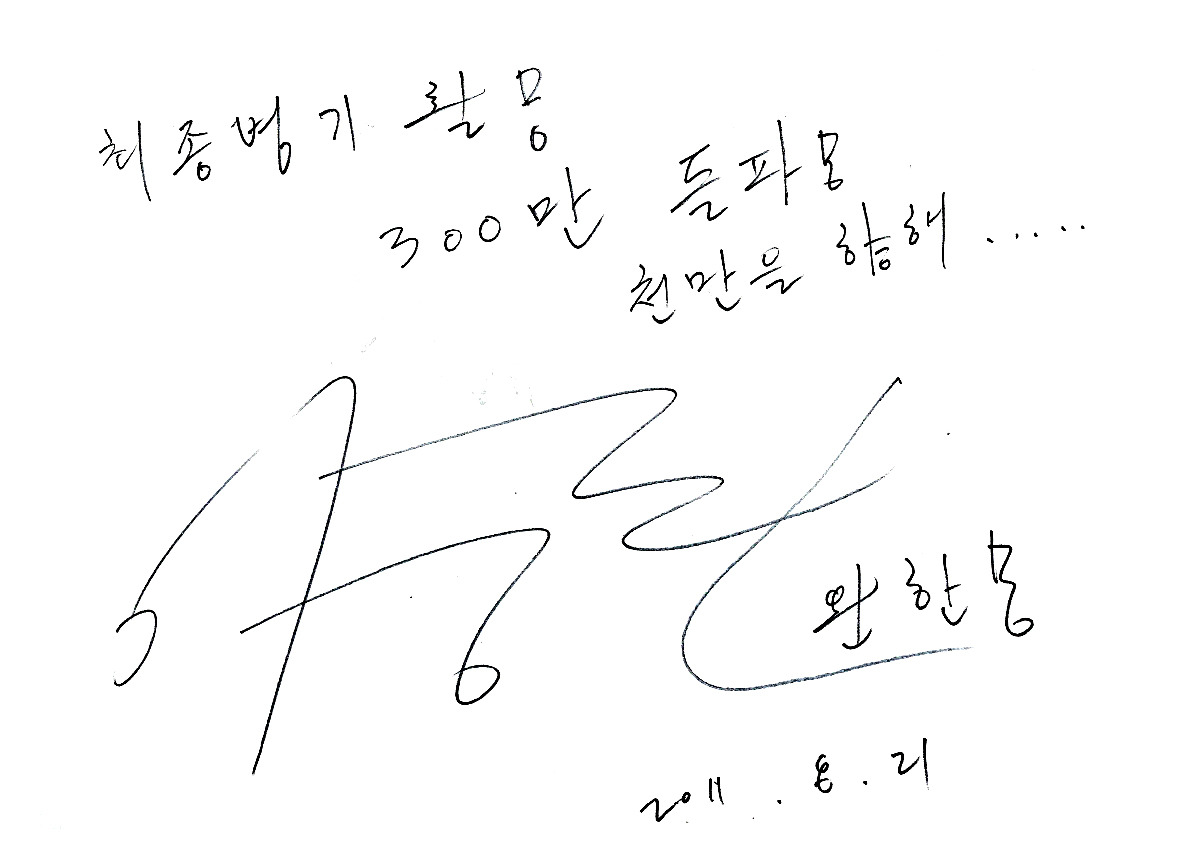 최종병기 활 몽
300만 돌파 몽
천만을 향해 .....
완한몽
2011. 8. 21